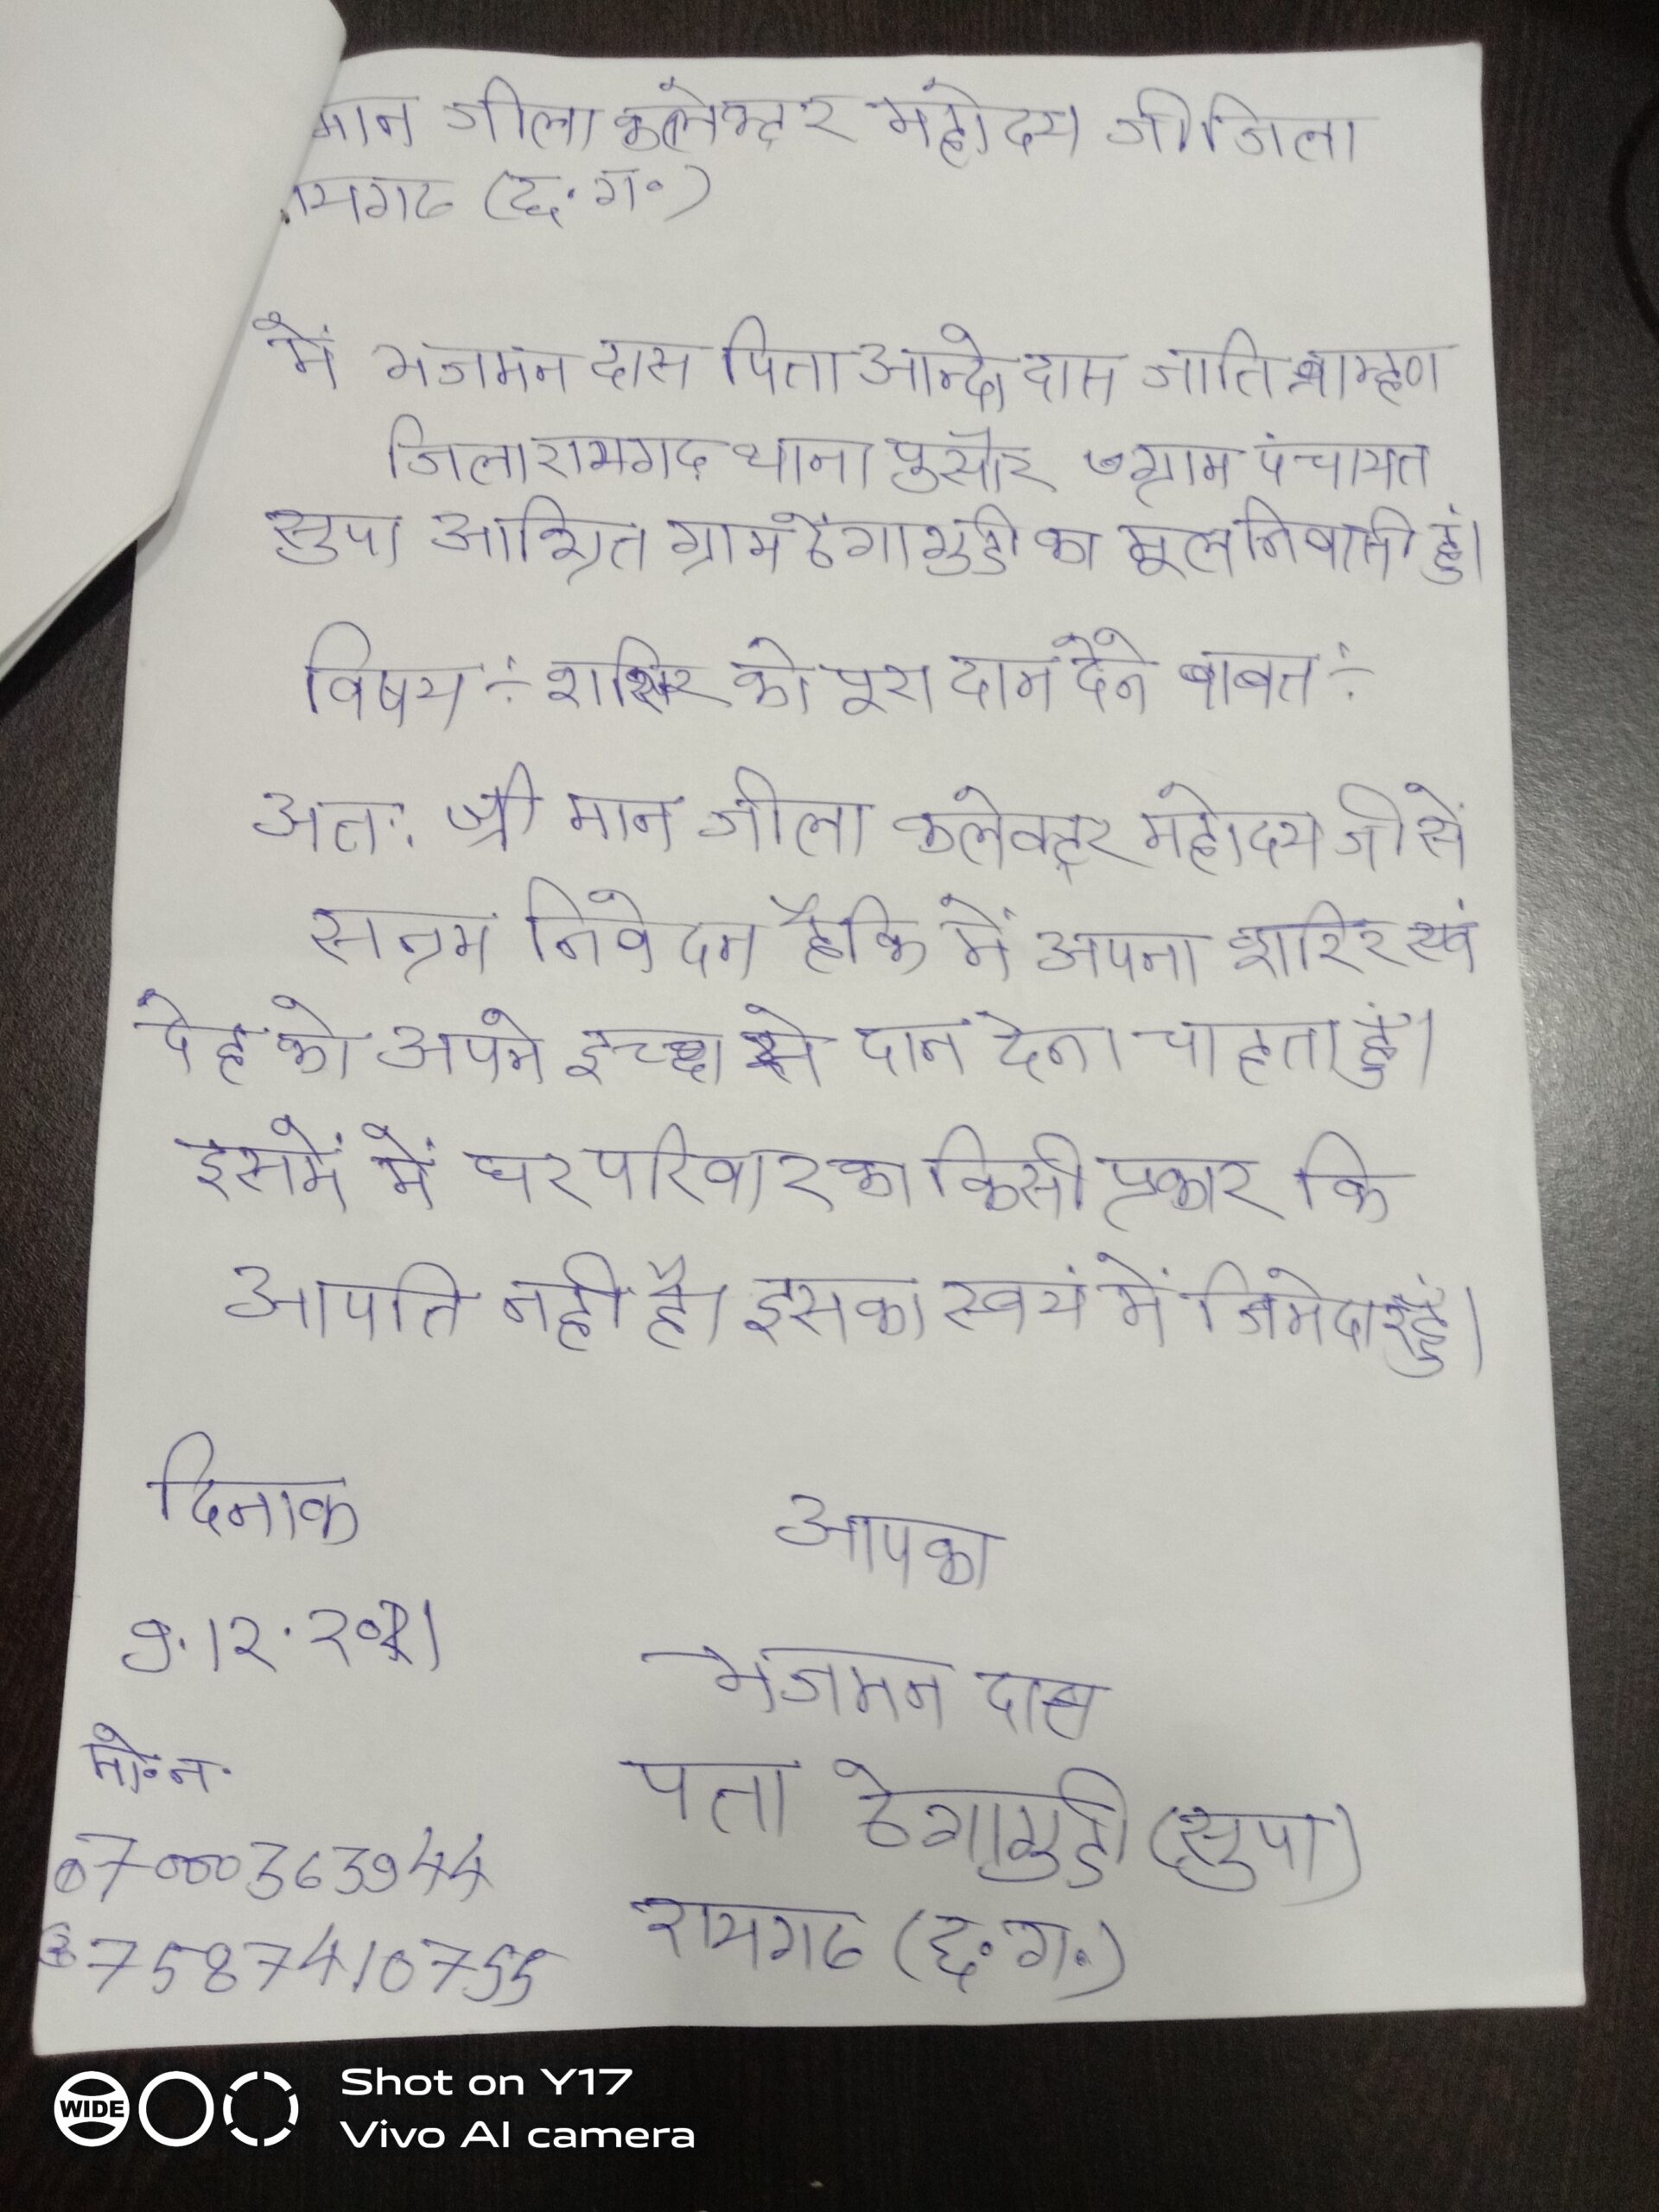 मान जीला कलेक्टर महोदय जी जिला
रायगढ (छ.ग.)
में भजमन दास पिता आन्दो दास जाति ब्राम्हण
जिला रायगढ़ थाना पुसौर ग्राम पंचायत
सुपा आश्रित ग्राम ठेंगागुडी का मूल निवासी हुं।
विषय ÷ शरिर को पूरा दान देंने बाबत ÷
अतः श्री मान जीला कलेक्ट्रर महोदय जी सें
सन्रम निवेदन है कि में अपना शरिर एवं
देह को अपने इच्छा से दान देना चाहता हुं।
इसमें में घर परिवार का किसी प्रकार कि
आपति नही है। इसका स्वयं में जिमेदार हुं।
दिनाक
9.12.2021
आपका
भजमन दास
मो.न.
पता ठेगागुडी (सुपा)
रायगढ (छ.ग.)
7000363944
7587410755
WIDE
Shot on Y17
Vivo AI camera